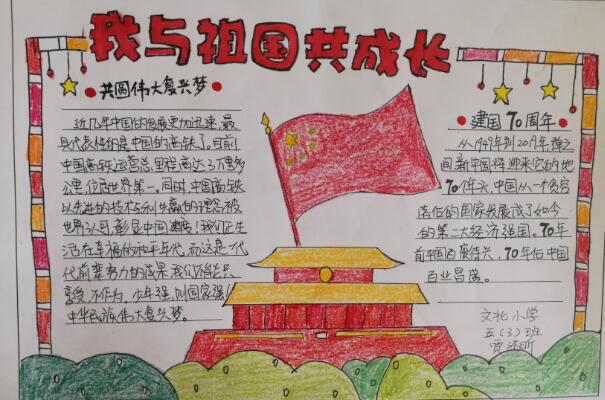 我与祖国共成长
共圆伟大复兴梦
近几年中国的发展更加迅速，最
具代表性的是中国的高铁了，目前
中国高铁运营总里程高达3万多
公里，位居世界第一，同时，中国高铁
以先进的技术与利共赢的理念被
世界认可，彰显中国速度！我们正生
活在幸福的和平年代，而这是一代
代前辈努力的成果，我们不能只
享受，不作为，少年强，则国家强！
中华民族伟大复兴梦。
建国70周年
从1949年到2019年
间，新中国将迎来它的
70年头，中国从一个贫穷
落后的国家发展成了如今
的第二大经济强国。70年
前中国百废待兴，70年后中国
百业昌盛。
文北小学
五（3）班